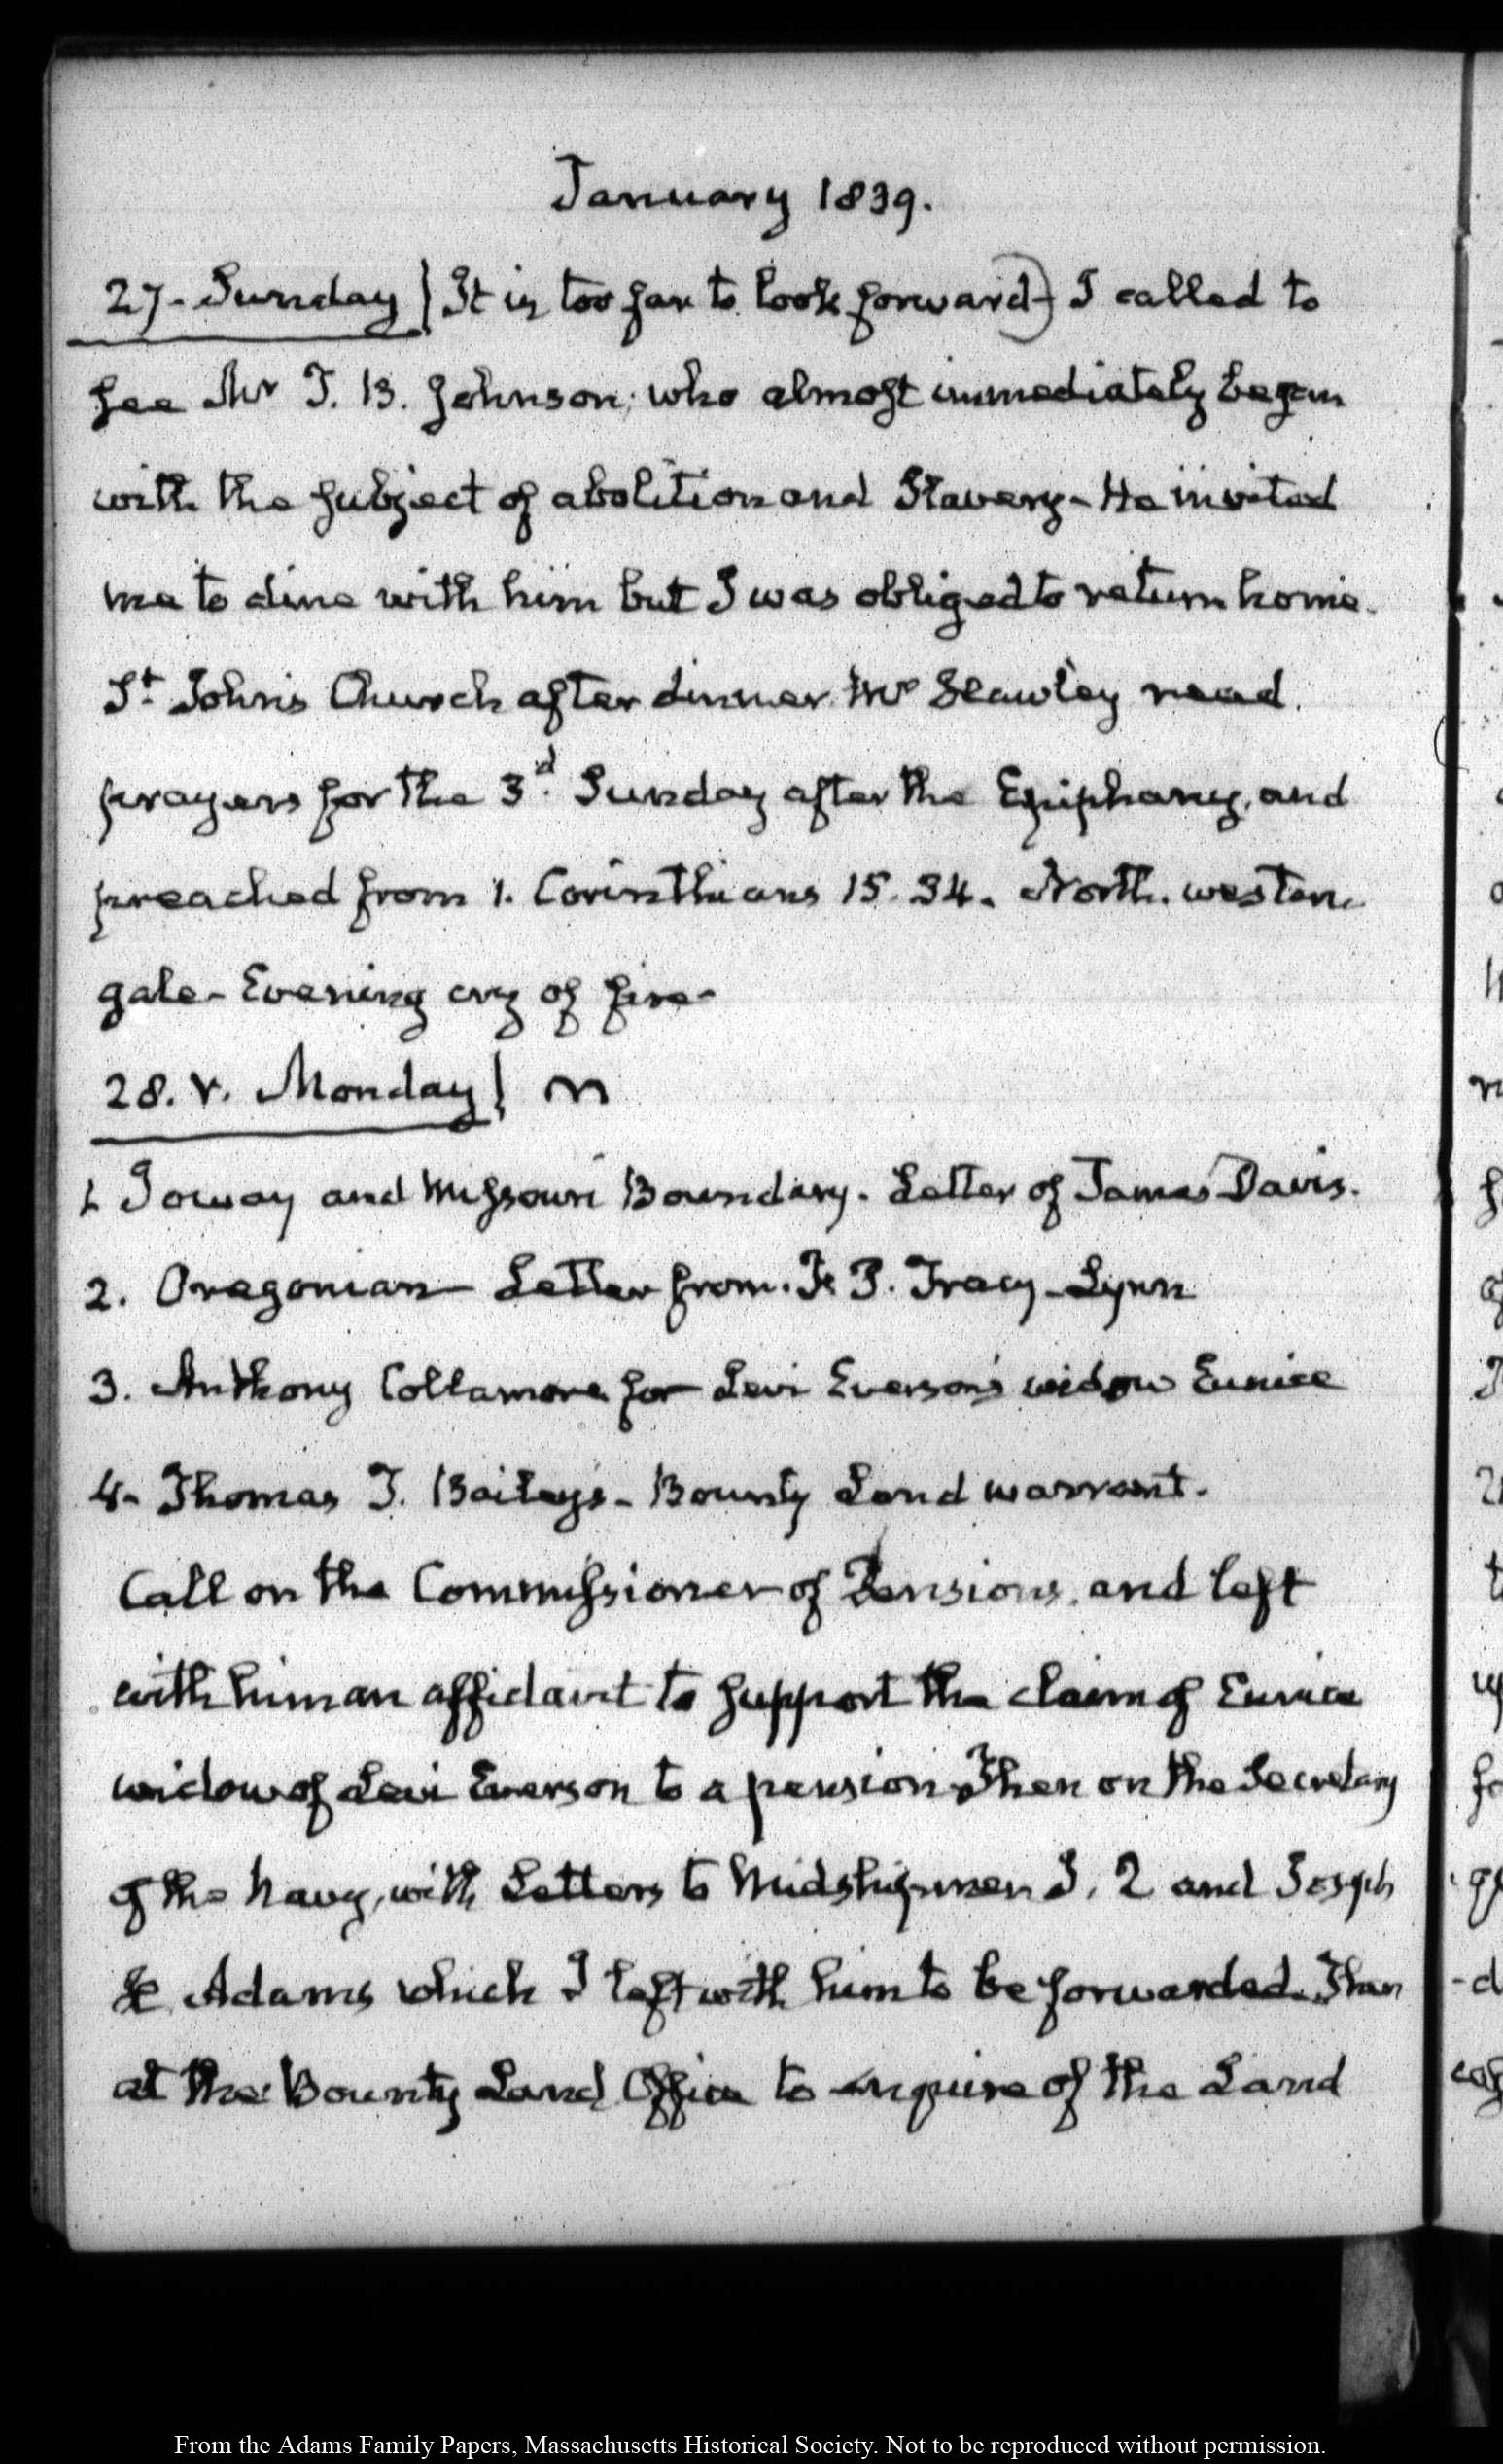 January 1839.
27. Sunday} It is too far to look forward) I called to
see Mr T. B. Johnson, who almost immediately began
with the subject of abolition and Slavery - He invited
me to dine with him but I was obliged to return home.
St. John's Church after dinner Mr Hawley read
prayers for the 3d. Sunday after the Epiphany, and
preached from 1. Corinthians 15. 34. North. western
gale - Evening cry of fire -
28. V. Monday}
1 Ioway and Missouri Boundary. Letter of James Davis.
2. Oregonian Letter from. F. P. Tracy - Lynn
3. Anthony Collamore for Levi Everson's widow Eunice
4 - Thomas T. Bailey's - Bounty Land warrant.
Call on the Commissioner of Pensions, and left
with him an affidavit to support the claim of Eunice
widow of Levi Everson to a pension. Then on the Secretary
of the Navy, with Letters to Midshipmen J. Q and Joseph
H. Adams which I left with him to be forwarded. Then
at the Bounty Land Office to enquire of the Land
From the Adams Family Papers, Massachusetts Historical Society. Not to be reproduced without permission.